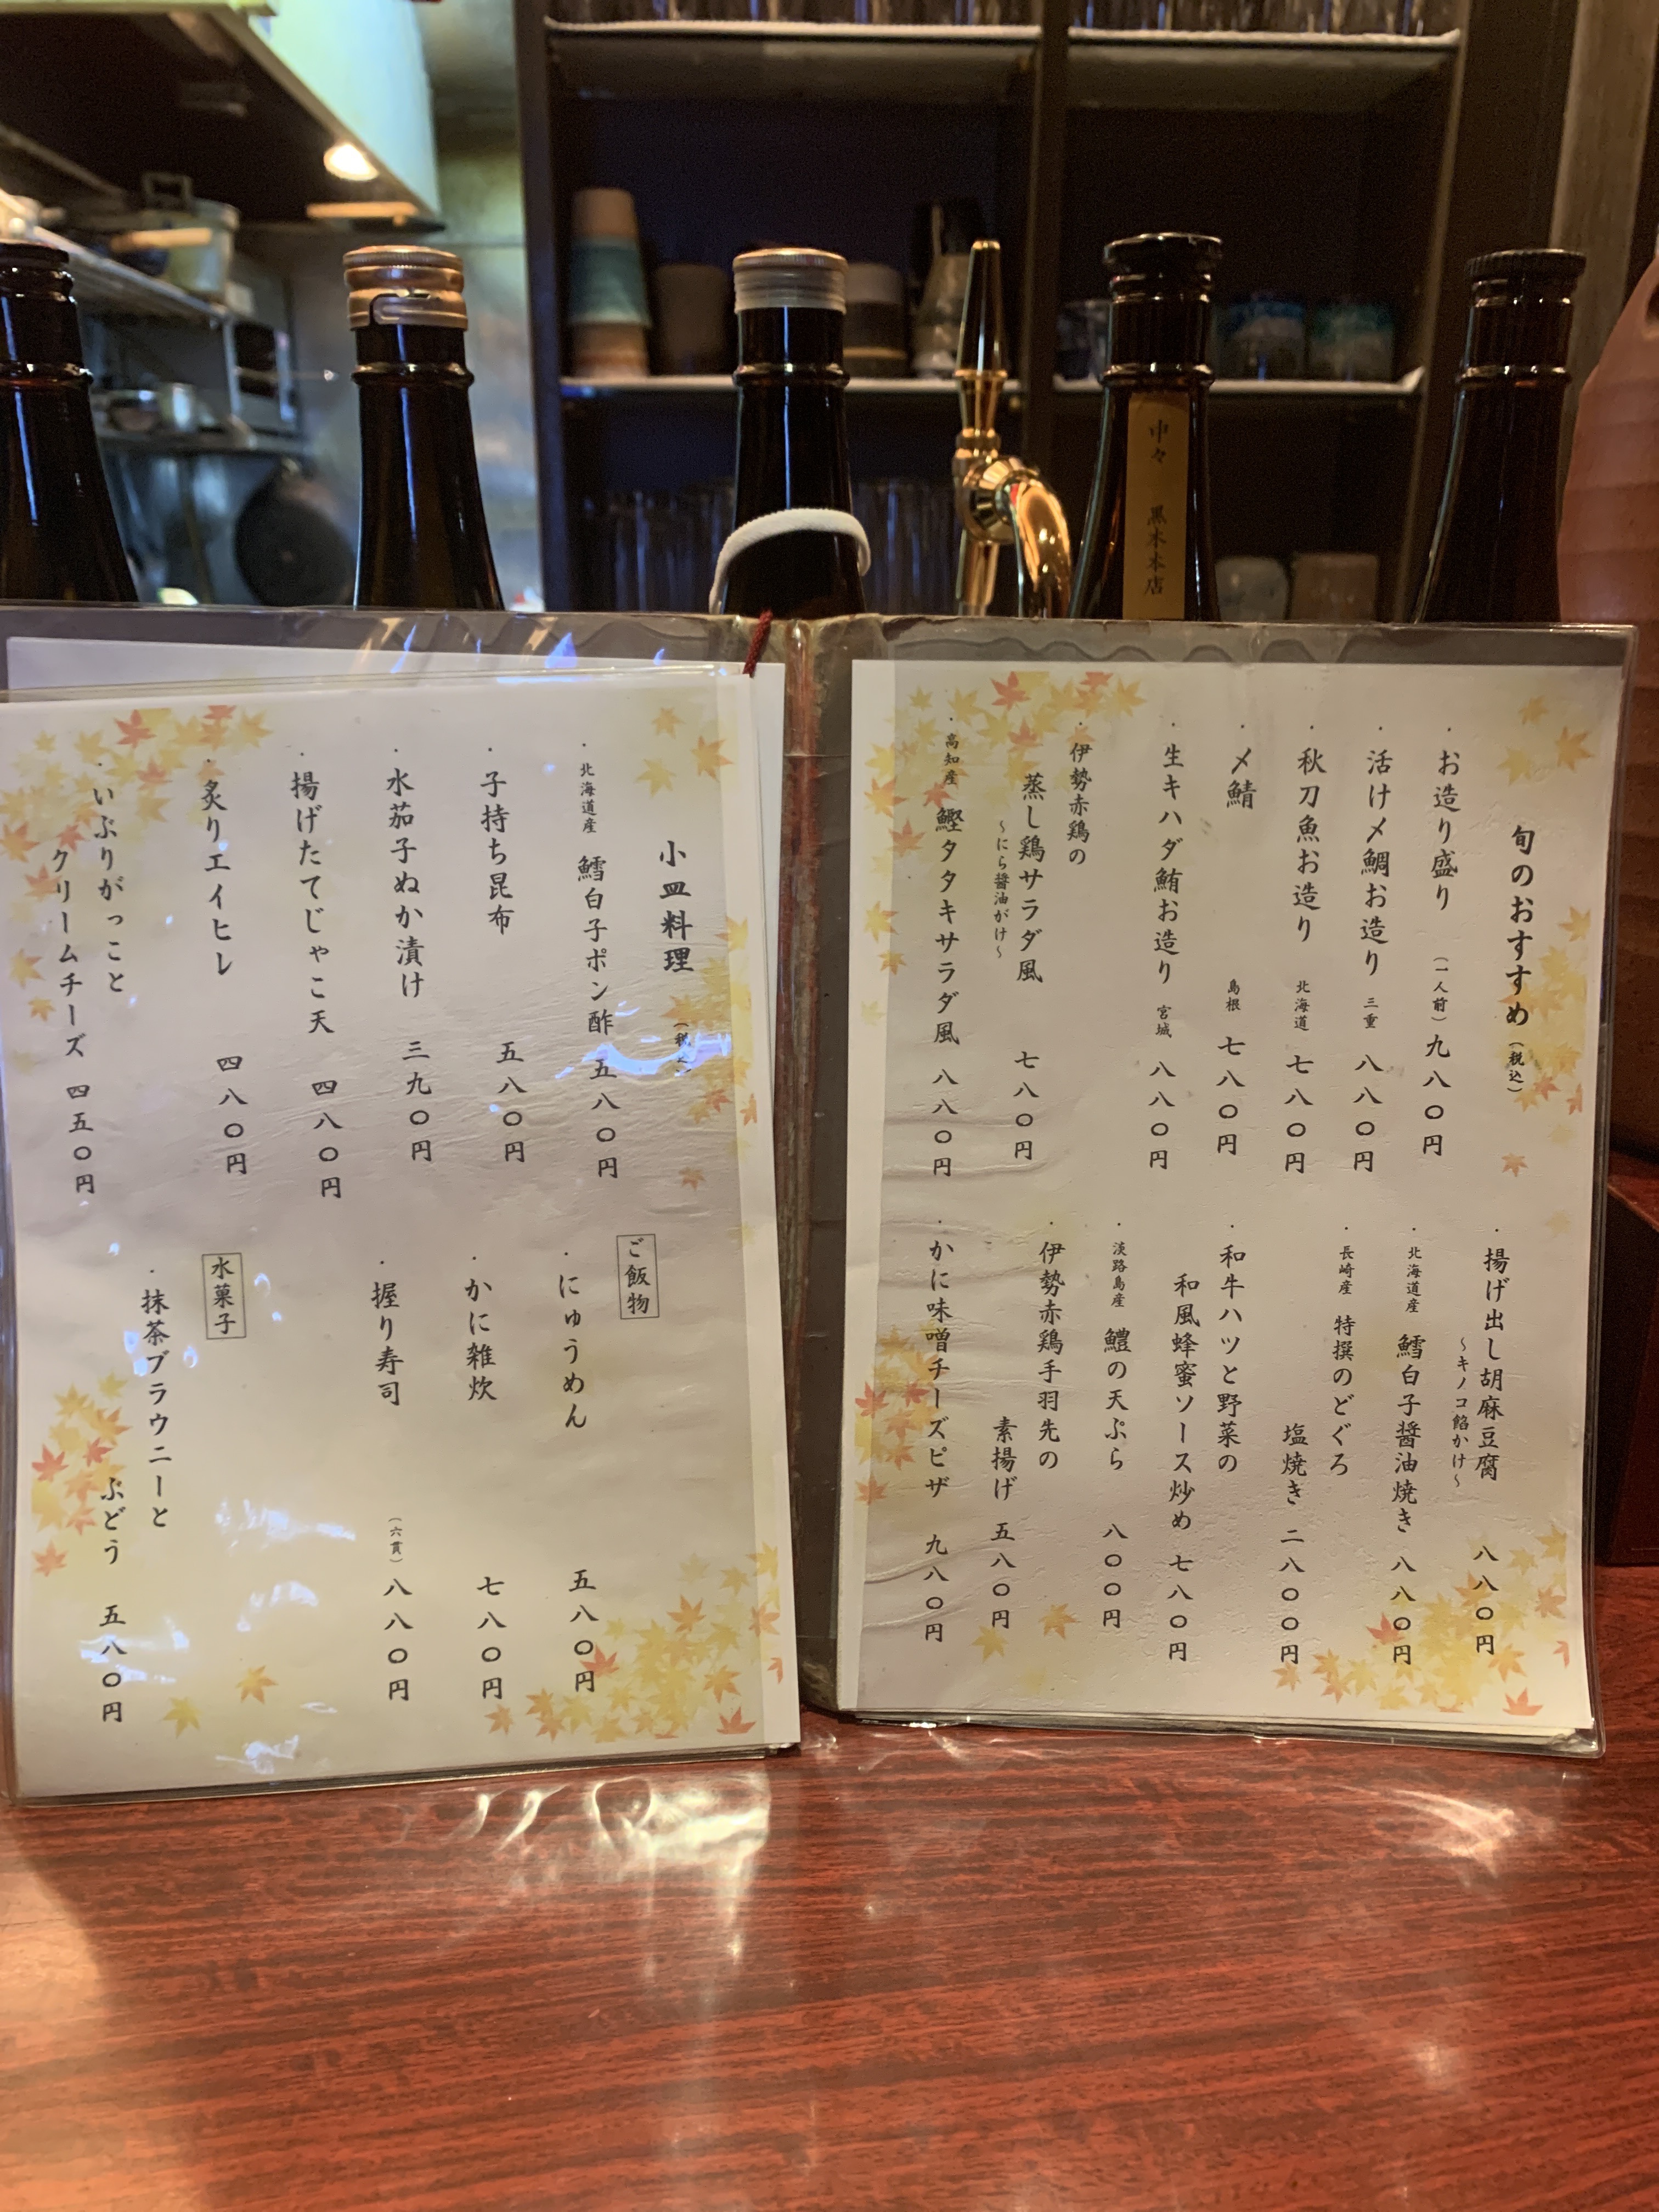 中々 黒木本店
旬のおすすめ(税込)
・お造り盛り (一人前)九八〇円
・活け〆鯛お造り 三重 八八〇円
・秋刀魚お造り 北海道 七八〇円
・〆鯖 島根 七八〇円
・生キハダ鮪お造り 宮城 八八〇円
・伊勢赤鶏の
蒸し鶏サラダ風 七八〇円
～にら醤油がけ～
・高知産 鰹タタキサラダ風 八八〇円
・揚げ出し胡麻豆腐 八八〇円
～キノコ餡かけ～
・北海道産 鱈白子醤油焼き 八八〇円
・長崎産 特撰のどぐろ
塩焼き 二八〇〇円
・和牛ハツと野菜の
和風蜂蜜ソース炒め 七八〇円
・淡路島産 鱧の天ぷら 八〇〇円
・伊勢赤鶏手羽先の
素揚げ 五八〇円
・かに味噌チーズピザ 九八〇円
小皿料理 (税込)
・北海道産 鱈白子ポン酢 五八〇円
・子持ち昆布 五八〇円
・水茄子ぬか漬け 三九〇円
・揚げたてじゃこ天 四八〇円
・炙りエイヒレ 四八〇円
・いぶりがっこと
クリームチーズ 四五〇円
ご飯物
・にゅうめん 五八〇円
・かに雑炊 七八〇円
・握り寿司 (六貫)八八〇円
水菓子
・抹茶ブラウニーと
ぶどう 五八〇円